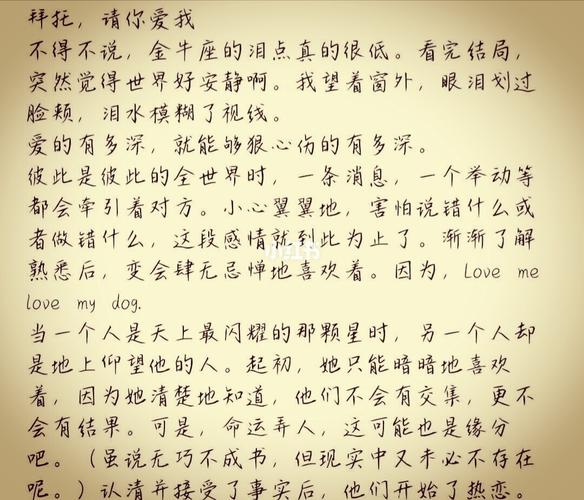 拜托，请你爱我
不得不说，金牛座的泪点真的很低。看完结局，
突然觉得世界好安静啊。我望着窗外，眼泪划过
脸颊，泪水模糊了视线。
爱的有多深，就能够狠心伤的有多深。
彼此是彼此的全世界时，一条消息，一个举动等
都会牵引着对方。小心翼翼地，害怕说错什么或
者做错什么，这段感情就到此为止了。渐渐了解
小红书
熟悉后，变会肆无忌惮地喜欢着。因为，Love me
love my dog.
当一个人是天上最闪耀的那颗星时，另一个人却
是地上仰望他的人。起初，她只能暗暗地喜欢
着，因为她清楚地知道，他们不会有交集，更不
会有结果。可是，命运弄人，这可能也是缘分
吧。（虽说无巧不成书，但现实中又未必不存在
呢。）认清并接受了事实后，他们开始了热恋。